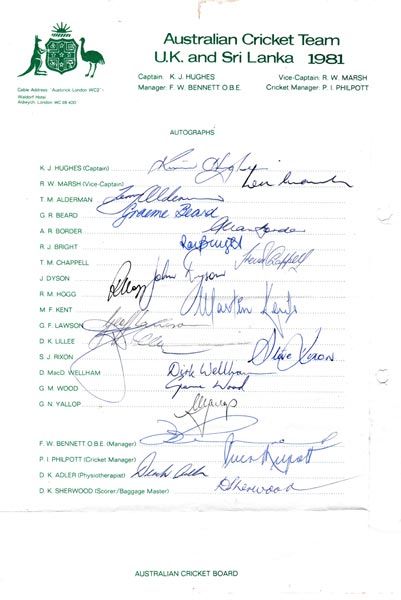 Australian Cricket Team
U.K. and Sri Lanka 1981
Captain: K. J. HUGHES Vice-Captain: R. W. MARSH
Manager: F. W. BENNETT O.B.E. Cricket Manager: P. I. PHILPOTT
Cable Address "Austcrick London WC2"
Waldorf Hotel
Aldwych, London WC2B 4DD
AUTOGRAPHS
K. J. HUGHES (Captain)
R. W. MARSH (Vice-Captain)
T. M. ALDERMAN Terry Alderman
G. R. BEARD Graeme Beard
A. R. BORDER Allan Border
R. J. BRIGHT Ray Bright
T. M. CHAPPELL Trevor Chappell
J. DYSON John Dyson
R. M. HOGG
M. F. KENT Martin Kent
G. F. LAWSON
D. K. LILLEE
S. J. RIXON Steve Rixon
D. MacD WELLHAM Dirk Wellham
G. M. WOOD Graeme Wood
G. N. YALLOP
F. W. BENNETT O.B.E (Manager)
P. I. PHILPOTT (Cricket Manager)
D. K. ADLER (Physiotherapist)
D. K. SHERWOOD (Scorer/Baggage Master) D Sherwood
AUSTRALIAN CRICKET BOARD